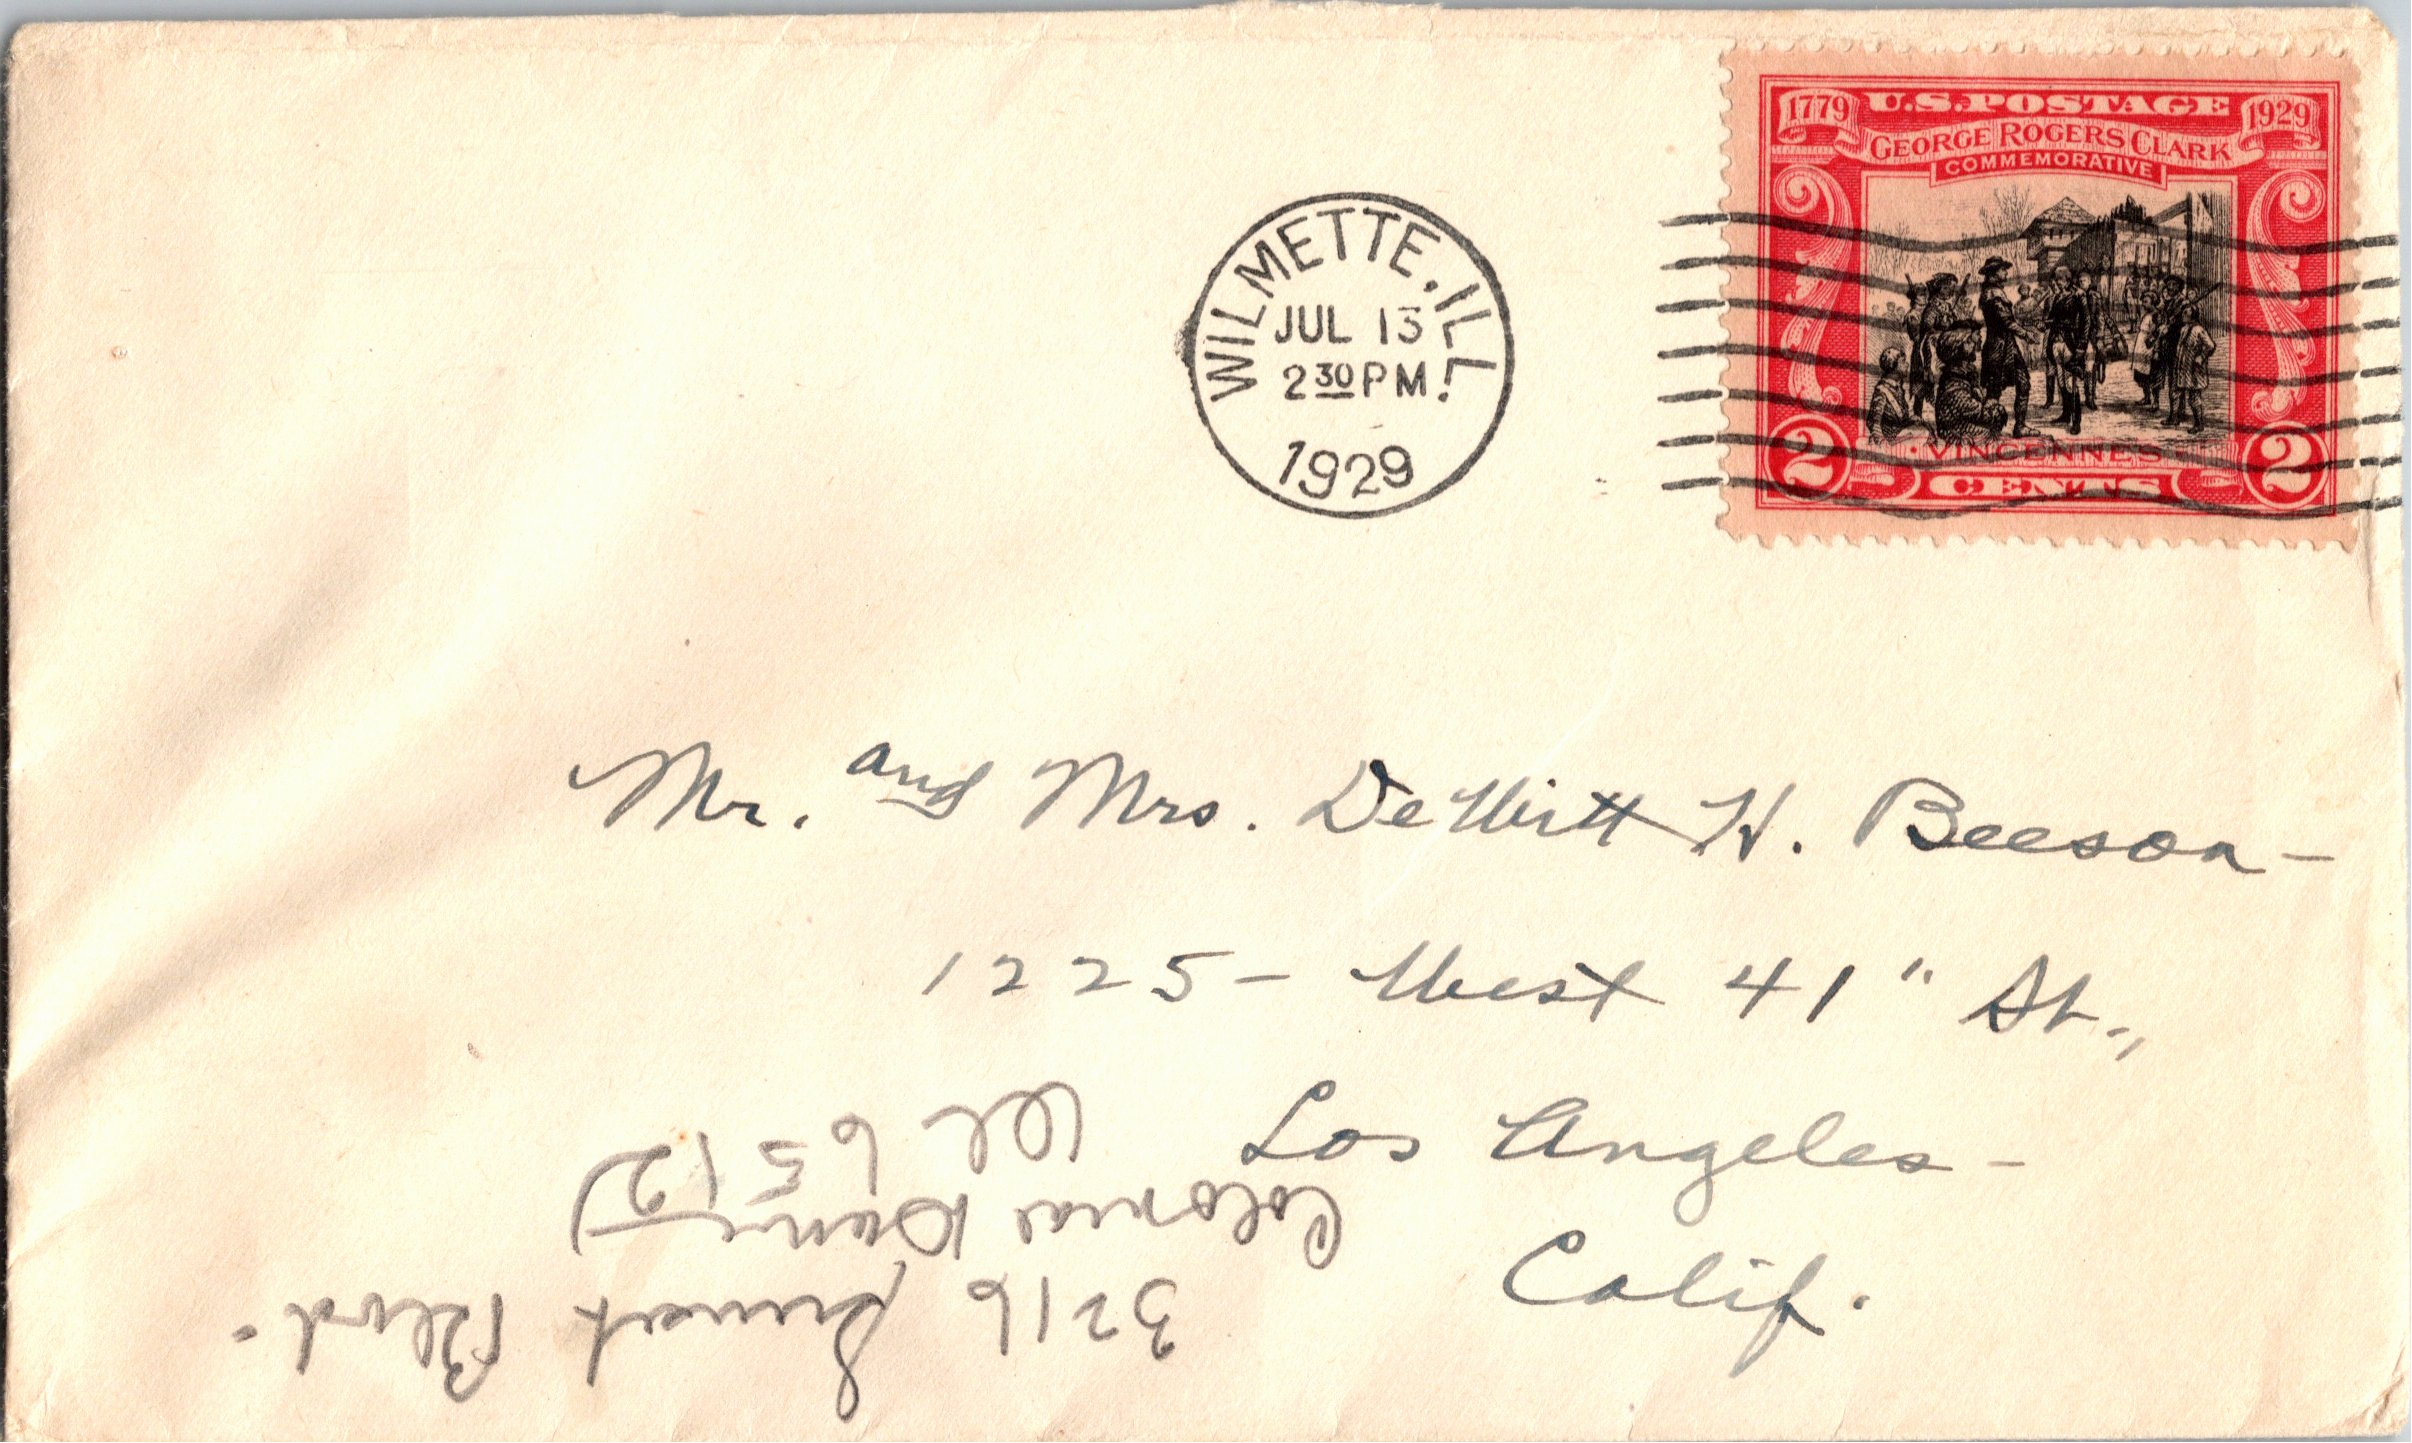 1779 U.S.POSTAGE 1929
GEORGE ROGERS CLARK
COMMEMORATIVE
VINCENNES
2 CENTS 2
WILMETTE, ILL.
JUL 13
2 30 PM
1929
Mr. and Mrs. DeWitt H. Beeson-
1225- West 41" St.,
Los Angeles-
Calif.
3216 Sunset Blvd.
Colonial
6512